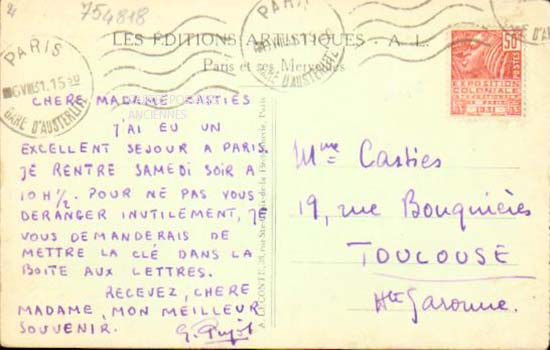 754818
PARIS
GARE D'AUSTERLITZ
PARIS
GARE D'AUSTERLITZ
LES ÉDITIONS ARTISTIQUES - A. L.
Paris et ses Merveilles
50c
POSTES
EXPOSITION
COLONIALE
INTERNATIONALE
PARIS
1931
CHERE MADAME CASTIES
ANCIENNES
J'AI EU UN
EXCELLENT SEJOUR A PARIS.
JE RENTRE SAMEDI SOIR A
10H ½. POUR NE PAS VOUS
DERANGER INUTILEMENT, JE
VOUS DEMANDERAIS DE
METTRE LA CLÉ DANS LA
BOITE AUX LETTRES.
RECEVEZ, CHERE
MADAME, MON MEILLEUR
SOUVENIR.
G. Pujol
A. LECONTE, 38, rue Ste-Croix-de-la-Bretonnerie, Paris
Mme Casties
19, rue Bouquières
TOULOUSE
Hte Garonne.